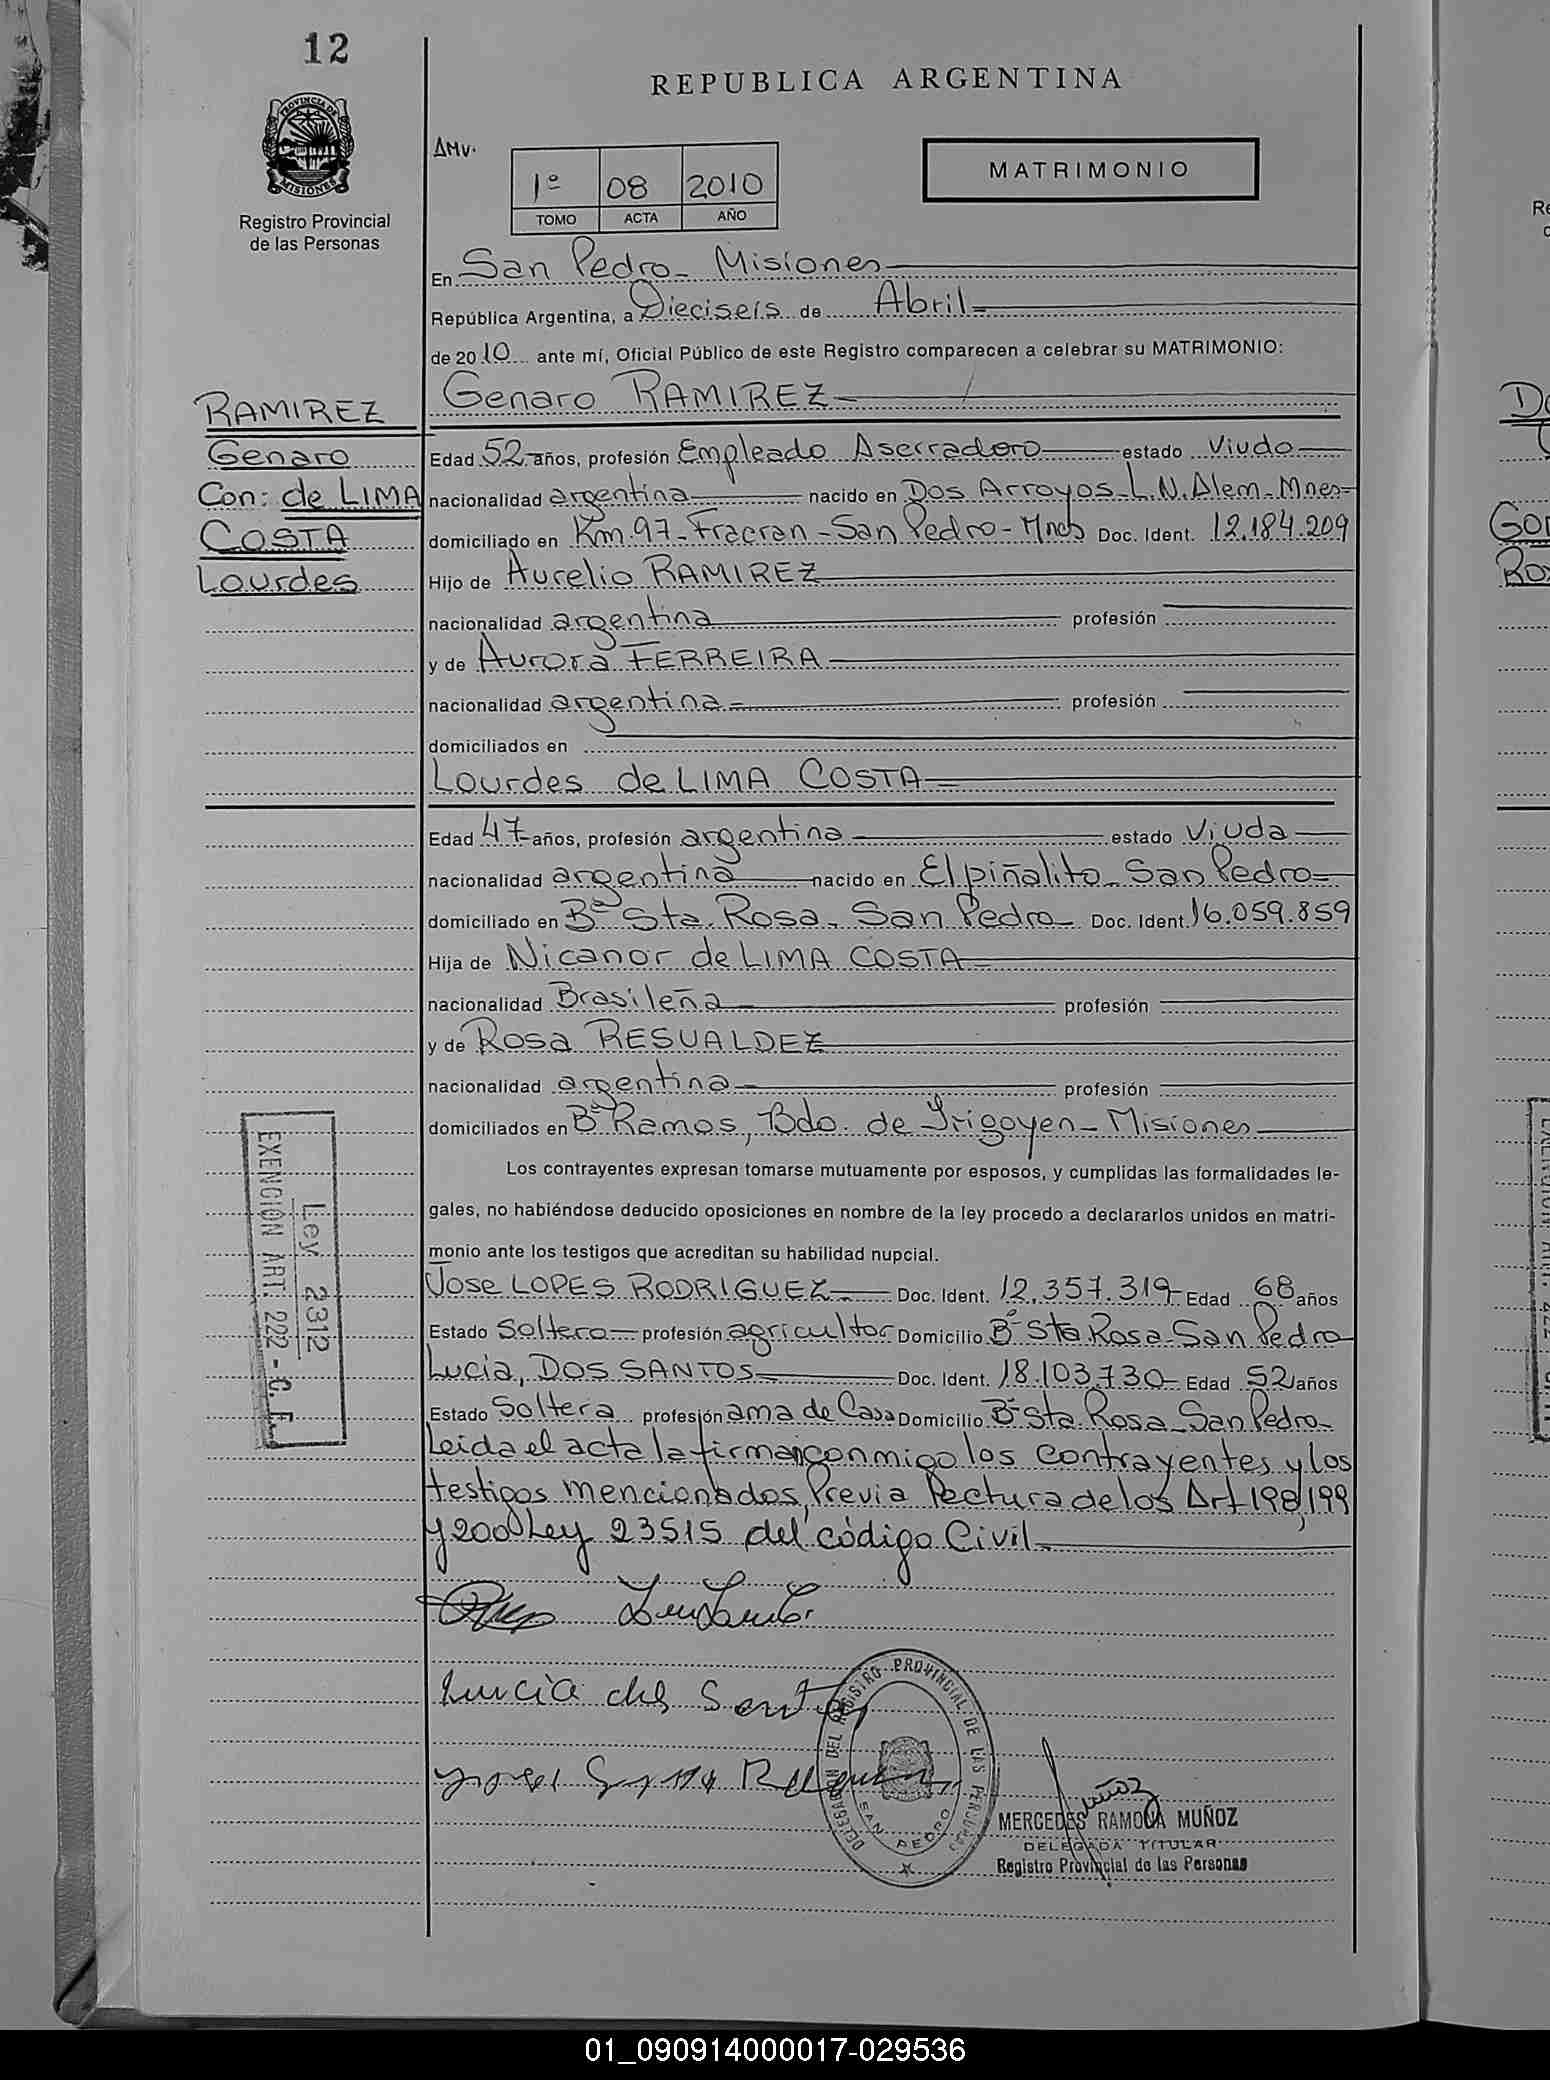 12
REPUBLICA ARGENTINA
PROVINCIA DE
MISIONES
Registro Provincial
de las Personas
AMV.
1º 08 2010
TOMO ACTA AÑO
MATRIMONIO
En San Pedro - Misiones
República Argentina, a Dieciseis de Abril
de 2010 ante mí, Oficial Público de este Registro comparecen a celebrar su MATRIMONIO:
Genaro RAMIREZ
RAMIREZ
Genaro
Con: de LIMA
COSTA
Lourdes
Edad 52 años, profesión Empleado Aserradero estado Viudo
nacionalidad argentina nacido en Dos Arroyos - L.N. Alem - Mnes
domiciliado en Km 97 - Fracran - San Pedro - Mnes Doc. Ident. 12.184.209
Hijo de Aurelio RAMIREZ
nacionalidad argentina profesión
y de Aurora FERREIRA
nacionalidad argentina profesión
domiciliados en
Lourdes de LIMA COSTA
Edad 47 años, profesión argentina estado Viuda
nacionalidad argentina nacido en El piñalito - San Pedro
domiciliado en Bº Sta. Rosa - San Pedro Doc. Ident. 16.059.859
Hija de Nicanor de LIMA COSTA
nacionalidad Brasileña profesión
y de Rosa RESUALDEZ
nacionalidad argentina profesión
domiciliados en Bº Ramos, Bdo. de Yrigoyen - Misiones
Los contrayentes expresan tomarse mutuamente por esposos, y cumplidas las formalidades le-
gales, no habiéndose deducido oposiciones en nombre de la ley procedo a declararlos unidos en matri-
monio ante los testigos que acreditan su habilidad nupcial.
Ley 2312
EXENCION ART. 222 - C. F.
Jose LOPES RODRIGUEZ Doc. Ident. 12.357.319 Edad 68 años
Estado Soltero profesión agricultor Domicilio Bº Sta Rosa - San Pedro
Lucia, DOS SANTOS Doc. Ident. 18.103.730 Edad 52 años
Estado Soltera profesión ama de Casa Domicilio Bº Sta. Rosa - San Pedro
Leida el acta la firman conmigo los contrayentes y los
testigos mencionados, Previa Lectura de los Art 198, 199
y 200 Ley 23515 del código Civil
Lucia dos Santos
DELEGACION DEL REGISTRO PROVINCIAL DE LAS PERSONAS
SAN PEDRO
Muñoz
MERCEDES RAMONA MUÑOZ
DELEGADA TITULAR
Registro Provincial de las Personas
01_090914000017-029536